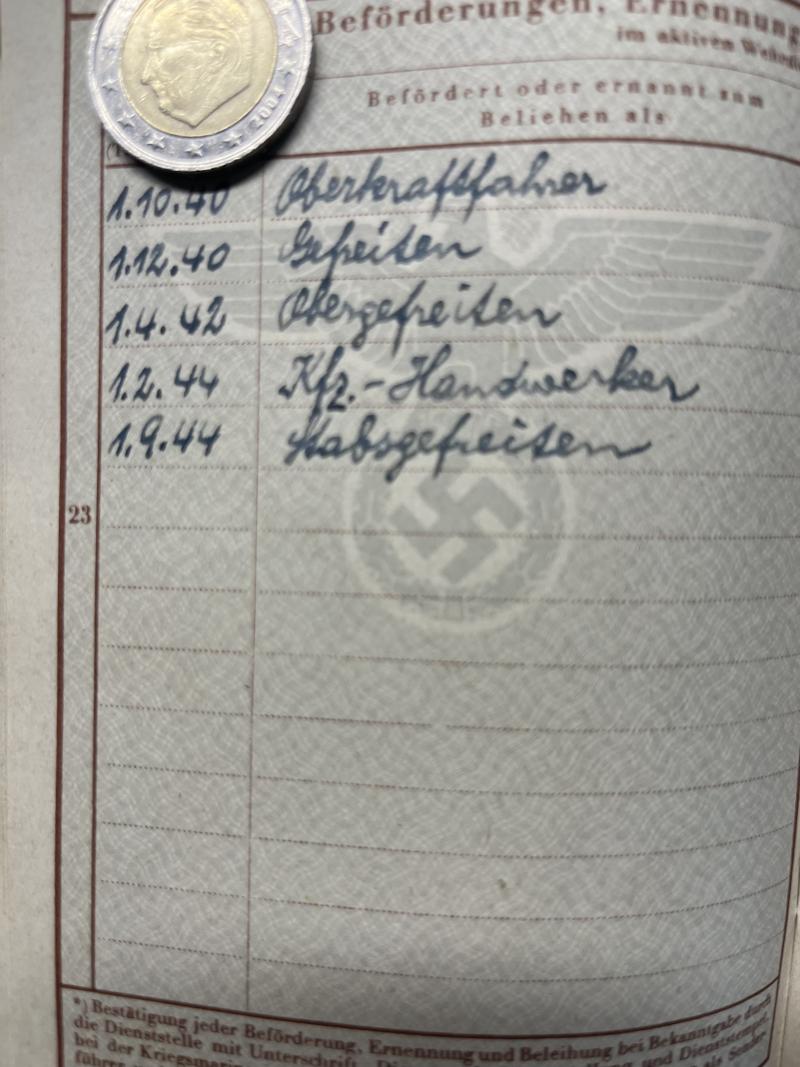 Beförderungen, Ernennung
im aktiven
Befördert oder ernannt zum
Beliehen als
2004
1.10.40 Oberkraftfahrer
1.12.40 Gefreiten
1.4.42 Obergefreiten
1.2.44 Kfz.-Handwerker
1.9.44 Stabsgefreiten
23
*) Bestätigung jeder Beförderung, Ernennung und Beleihung bei Bekanntgabe durch
die Dienststelle mit Unterschrift und Dienststempel,
bei der Kriegsmarine als Sonder-